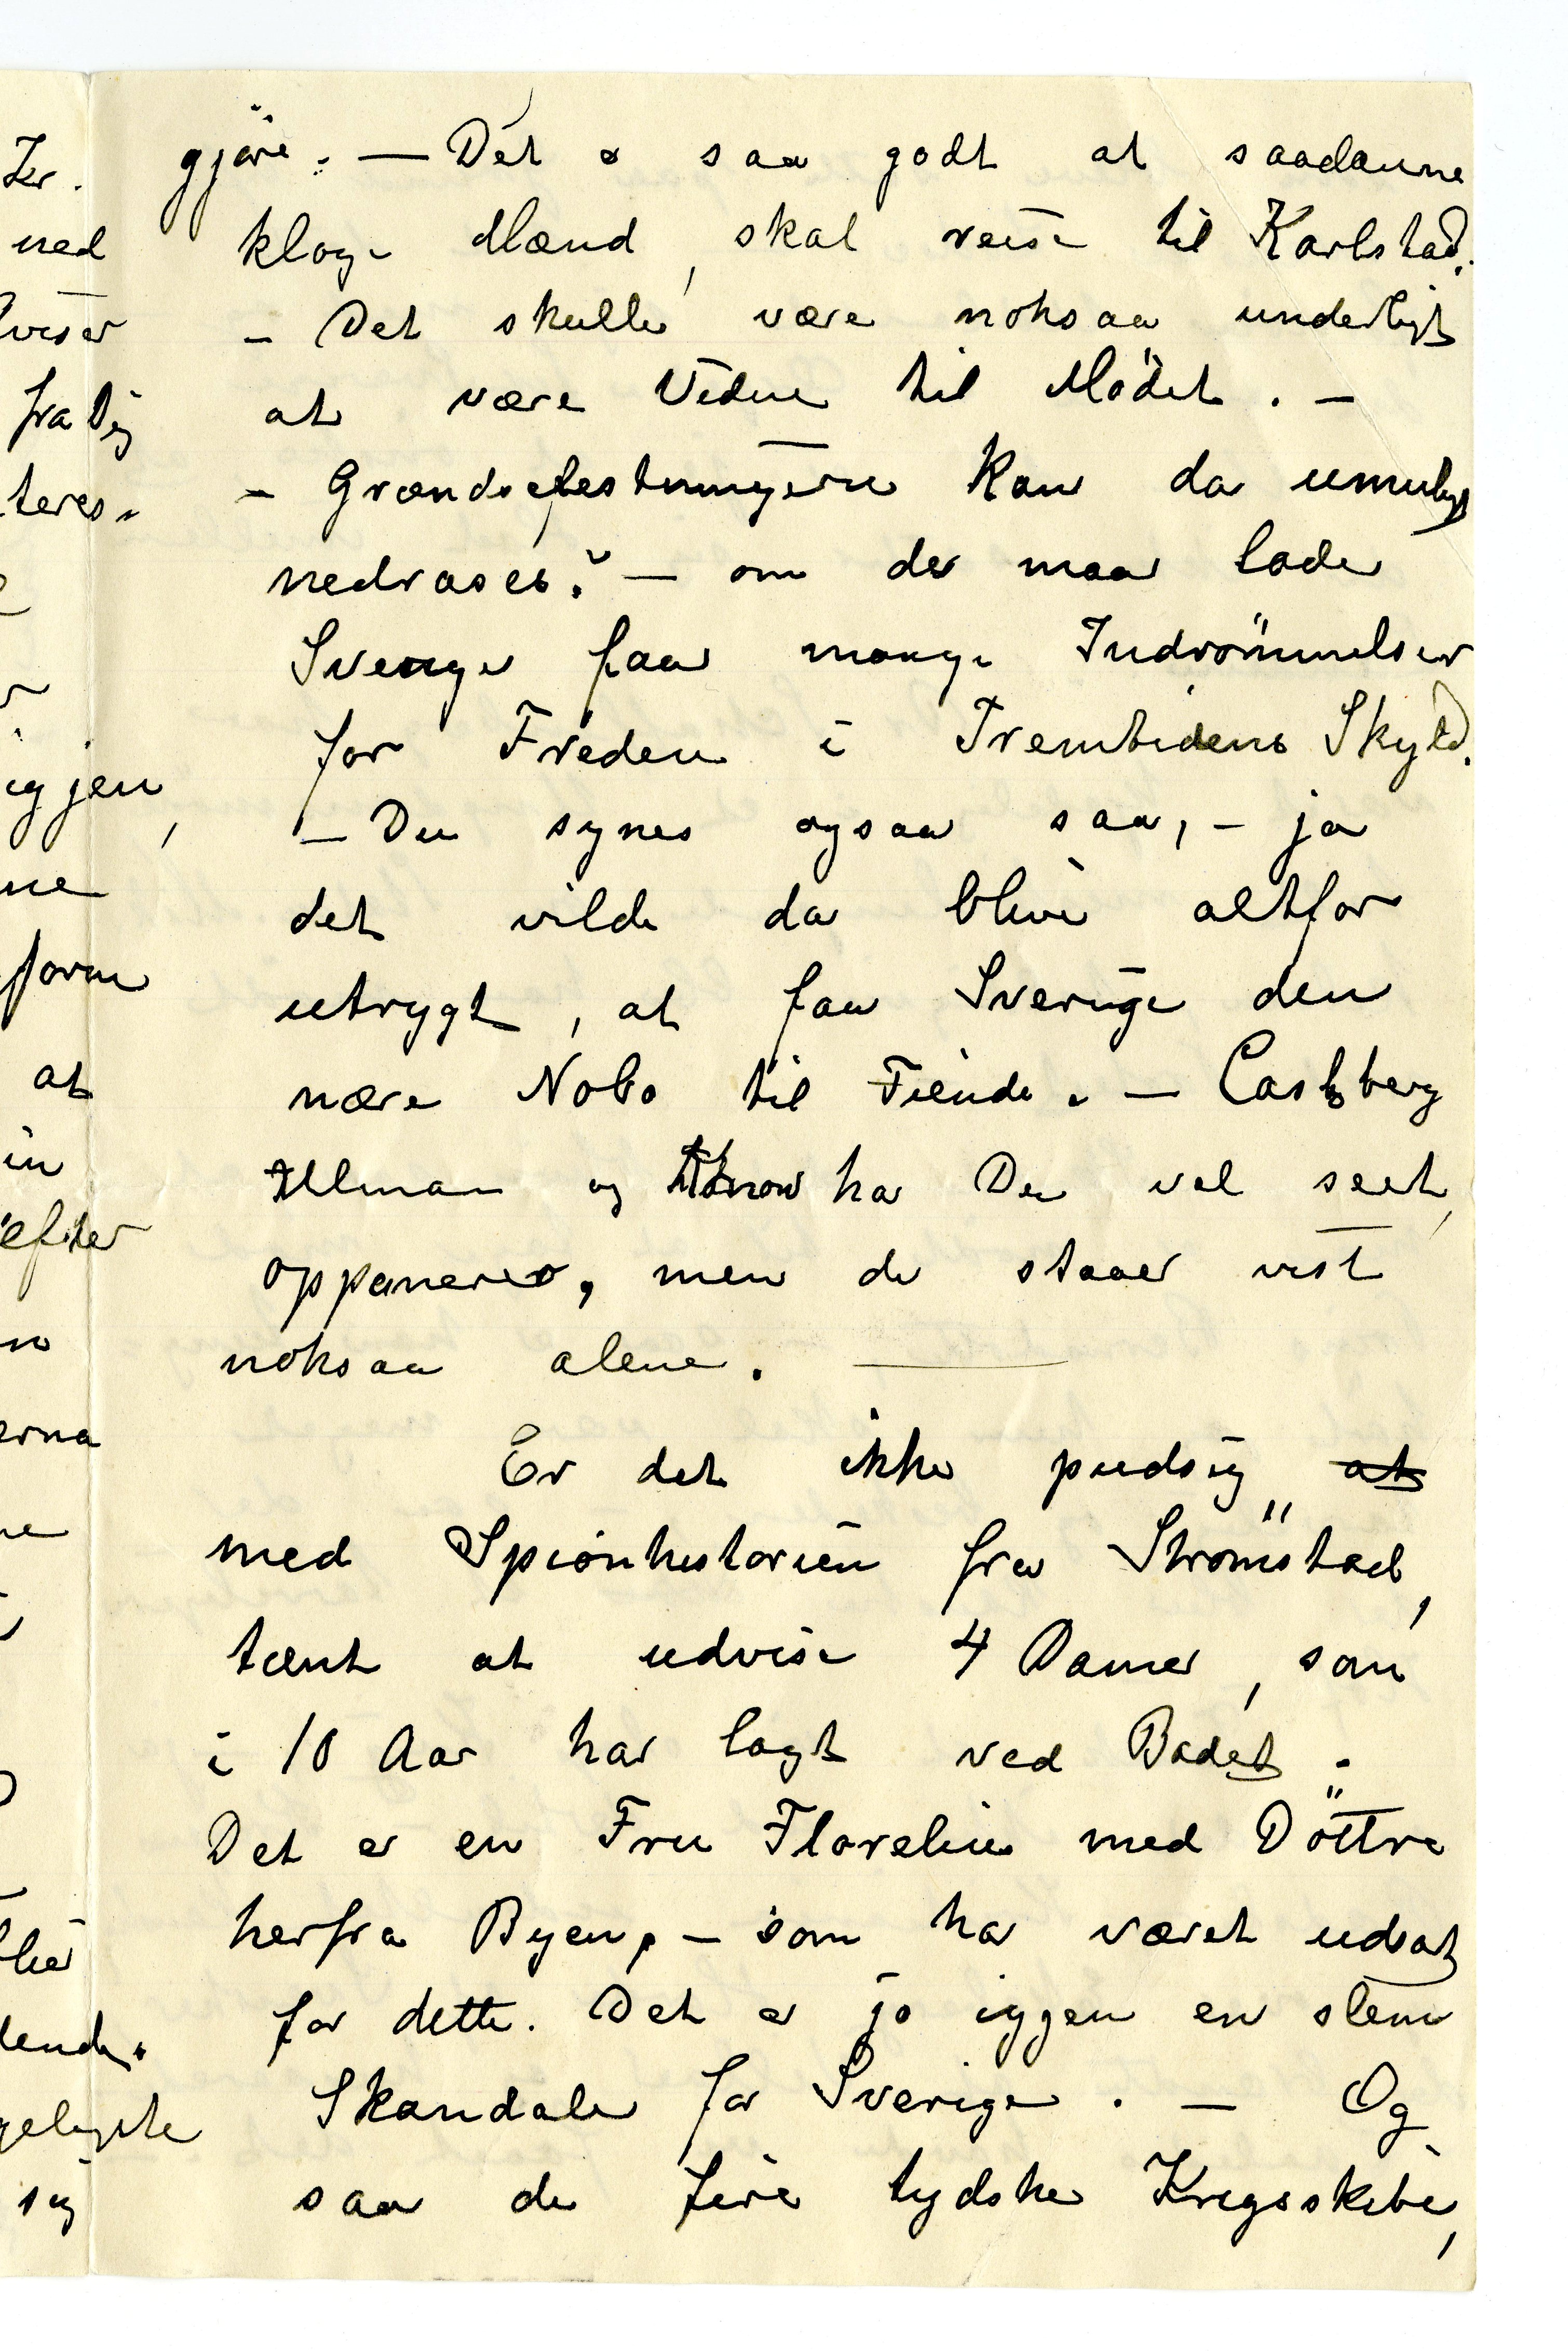 gjöre. — Det er saa godt at saadanne
kloge Mænd, skal reise til Karlstad.
– Det skulle være noksaa underligt
at være Vidne til Mödet. –
– Grændsefestningerne kan da umulig
nedrases? — om der maa lade
Sverige faa mange Indrömmelser
for Freden i Fremtidens Skyld.
– Du synes ogsaa saa, – ja
det vilde da blive altfor
utrygt, at faa Sverige den
nære Nabo til Fiende. — Castberg
Ullman og Konow har Du vel seet,
opponerer, men de staaer vist
noksaa alene. —
Er det ikke pudsig at
med Spionhistorien fra Strömstad,
tænk at udvise 4 Damer, som
i 10 Aar har lagt ved Badet.
Det er en Fru Florelius med Döttre
herfra Byen, – som har været udsat
for dette. Det er jo iggjen en slem
Skandale for Sverige. — Og
saa de fire tydske Krigsskibe,
Zer.
ned
viser
fra Dig
teres.
iggjen,
ne
form
at
in
efter
erna
lende.
sig